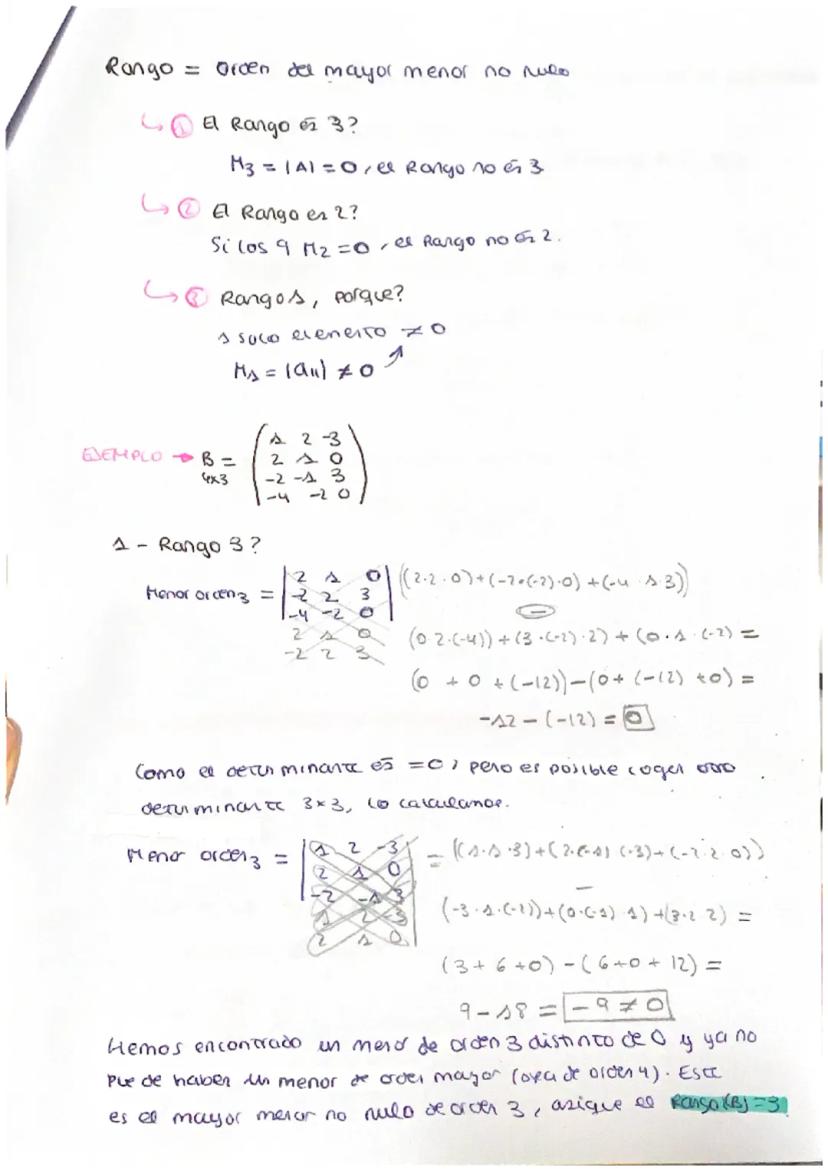 Rango = orden del mayor menor no nulo
↳ ① El Rango es 3?
M3 = |A| = 0, el Rango no es 3
↳ ② El Rango es 2?
Si los 9 M2 = 0, el Rango no es 2.
↳ ③ Rango 1, porque?
1 solo elemento ≠ 0
M1 = |a11| ≠ 0
EJEMPLO → B =
4x3
1 2 -3
2 1 0
-2 -1 3
-4 -2 0
1 - Rango 3?
Menor orden 3 =
2 1 0 ((2·2·0)+(-2·(-2)·0)+(-4·1·3))
-2 2 3
-4 -2 0
-
2 1 0 (0·2·(-4))+(3·(-2)·2)+(0·1·(-2) =
-2 2 3
(0 + 0 + (-12))-(0+(-12)+0) =
-12-(-12) = 0
Como el determinante es = 0, pero es posible coger otro
determinante 3x3, lo calculamos.
Menor orden 3 =
1 2 -3 = ((1·1·3)+(2·(-1)·(-3)+(-2·2·0))
2 1 0
-2 -1 3
-
1 2 -3 (-3·1·(-2))+(0·(-1)·1)+(3·2·2) =
2 1 0
(3+6+0)-(6+0+12) =
9-18 = -9 ≠ 0
Hemos encontrado un menor de orden 3 distinto de 0 y ya no
puede haber un menor de orden mayor (o sea de orden 4). Este
es el mayor menor no nulo de orden 3, asique el Rango(B)=3